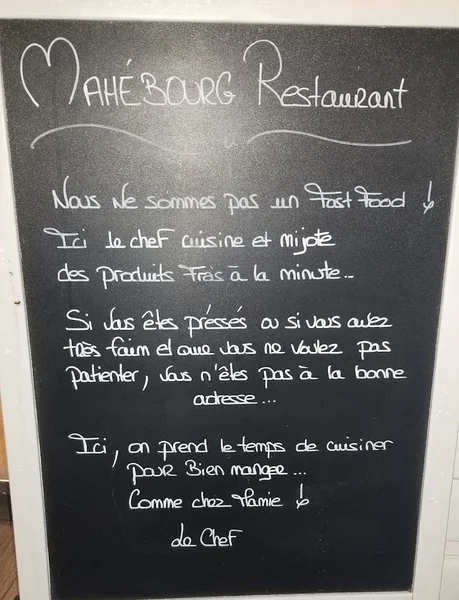 MAHÉBOURG Restaurant
Nous Ne sommes pas un Fast Food !
Ici le chef cuisine et mijote
des produits Frais à la minute...
Si vous êtes préssés ou si vous avez
très faim et que vous ne voulez pas
patienter, vous n'êtes pas à la bonne
adresse...
Ici, on prend le temps de cuisiner
pour Bien manger...
Comme chez Mamie !
de Chef